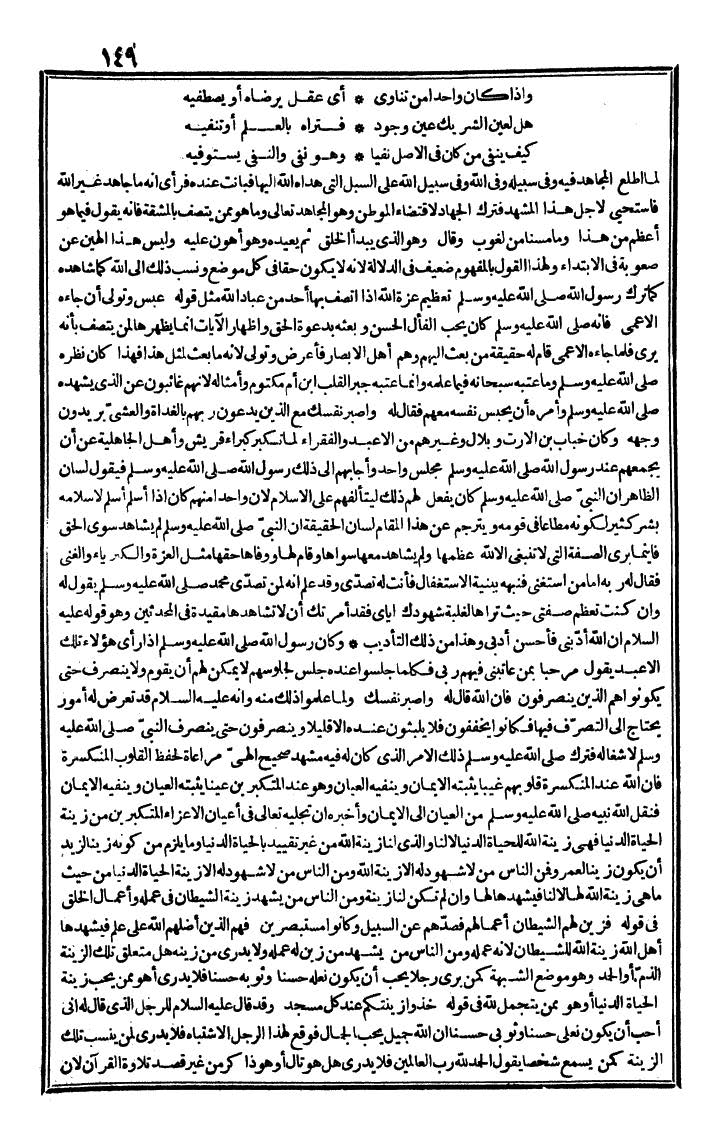 ١٤٩
واذا كان واحدا من تناوى * أى عقل يرضاه أو يصطفيه
هل لعين الشريك عين وجود * فتراه بالعلم أو تنفيه
كيف ينفى من كان فى الاصل نفيا * وهو نفى والنفى يستوفيه
لما اطلع المجاهد فيه وفى سبيله وفى الله وفى سبيل الله على السبل التى هداه الله اليها فبانت عنده فرأى انه ما جاهد غير الله
فاستحيى لاجل هذا المشهد فترك الجهاد لاقتضاء الموطن وهو المجاهد تعالى وما هو ممن يتصف بالمشقة فانه يقول فيما هو
أعظم من هذا وما مسنا من لغوب وقال وهو الذى يبدأ الخلق ثم يعيده وهو أهون عليه وليس هذا الهين عن
صعوبة فى الابتداء ولهذا القول بالمفهوم ضعيف فى الدلالة لانه لا يكون حقا فى كل موضع ونسب ذلك الى الله كما شاهده
كما ترك رسول الله صلى الله عليه وسلم تعظيم عزة الله اذا اتصف بها أحد من عباد الله مثل قوله عبس وتولى أن جاءه
الاعمى فانه صلى الله عليه وسلم كان يحب الفأل الحسن وبعثه بدعوة الحق واظهار الآيات انما يظهرها لمن يتصف بأنه
يرى فلما جاءه الاعمى قام له حقيقة من بعث اليهم وهم أهل الابصار فأعرض وتولى لانه ما بعث لمثل هذا فهذا كان نظره
صلى الله عليه وسلم وما عتبه سبحانه فيما علمه وانما عتبه جبر القلب ابن أم مكتوم وأمثاله لانهم غائبون عن الذى يشهده
صلى الله عليه وسلم وأمره أن يحبس نفسه معهم فقال له واصبر نفسك مع الذين يدعون ربهم بالغداة والعشى يريدون
وجهه وكان خباب بن الارت وبلال وغيرهم من الاعبد والفقراء لما تكبر كبراء قريش وأهل الجاهلية عن أن
يجمعهم عند رسول الله صلى الله عليه وسلم مجلس واحد وأجابهم الى ذلك رسول الله صلى الله عليه وسلم فيقول لسان
الظاهر ان النبىّ صلى الله عليه وسلم كان يفعل لهم ذلك ليتألفهم على الاسلام لان واحد امنهم كان اذا أسلم أسلم لاسلامه
بشر كثير لكونه مطاعا فى قومه ويترجم عن هذا المقام لسان الحقيقة ان النبىّ صلى الله عليه وسلم لم يشاهد سوى الحق
فاينما يرى الصفة التى لا تنبغى الا لله عظمها ولم يشاهد معها سواها وقام لها ووفاها حقها مثل العزة والكبرياء والغنى
فقال له ربه اما من استغنى فنبهه ببنية الاستفعال فأنت له تصدّى وقد علم انه لمن تصدّى محمد صلى الله عليه وسلم يقول له
وان كنت تعظم صفتى حيث تراها لغلبة شهودك اياى فقد أمرتك أن لا تشاهدها مقيدة فى المحدثين وهو قوله عليه
السلام ان الله أدّبنى فأحسن أدبى وهذا من ذلك التأديب * وكان رسول الله صلى الله عليه وسلم اذا رأى هؤلاء تلك
الاعبد يقول مرحبا بمن عاتبنى فيهم ربى فكلما جلسوا عنده جلس لجلوسهم لا يمكن لهم أن يقوم ولا ينصرف حتى
يكونوا هم الذين ينصرفون فان الله قال له واصبر نفسك ولما علموا ذلك منه وانه عليه السلام قد تعرض له أمور
يحتاج الى التصرّف فيها فكانوا يخففون فلا يلبثون عنده الا قليلا وينصرفون حتى ينصرف النبىّ صلى الله عليه
وسلم لاشغاله فترك صلى الله عليه وسلم ذلك الامر الذى كان له فيه مشهد صحيح الهىّ مراعاة لحفظ القلوب المنكسرة
فان الله عند المنكسرة قلوبهم غيبا يثبته الايمان وينفيه العيان وهو عند المتكبرين عينا يثبته العيان وينفيه الايمان
فنقل الله نبيه صلى الله عليه وسلم من العيان الى الايمان وأخبره ان تجليه تعالى فى أعيان الاعزاء المتكبرين من زينة
الحياة الدنيا فهى زينة الله للحياة الدنيا لا لنا والذى لنا زينة الله من غير تقييد بالحياة الدنيا وما يلزم من كونه زينا لزيد
أن يكون زينا لعمرو فمن الناس من لا شهود له الا زينة الله ومن الناس من لا شهود له الا زينة الحياة الدنيا من حيث
ما هى زينة الله لها لا لنا فيشهدها لها وان لم تكن لنا زينة ومن الناس من يشهد زينة الشيطان فى عمله وأعمال الخلق
فى قوله فزين لهم الشيطان أعمالهم فصدّهم عن السبيل وكانوا مستبصرين فهم الذين أضلهم الله على علم فيشهدها
أهل الله زينة الله للشيطان لانه عمله ومن الناس من يشهد من زين له عمله ولا يدرى من زينه هل متعلق تلك الزينة
الذمّ أو الحمد وهو موضع الشبهة كمن يرى رجلا يحب أن يكون نعله حسنا وثوبه حسنا فلا يدرى أهو ممن يحب زينة
الحياة الدنيا أو هو ممن يتجمل لله فى قوله خذوا زينتكم عند كل مسجد وقد قال عليه السلام للرجل الذى قال له انى
أحب أن يكون نعلى حسنا وثوبى حسنا ان الله جميل يحب الجمال فوقع لهذا الرجل الاشتباه فلا يدرى لمن ينسب تلك
الزينة كمن يسمع شخصا يقول الحمد لله رب العالمين فلا يدرى هل هو تال أو هو ذاكر من غير قصد تلاوة القرآن لان